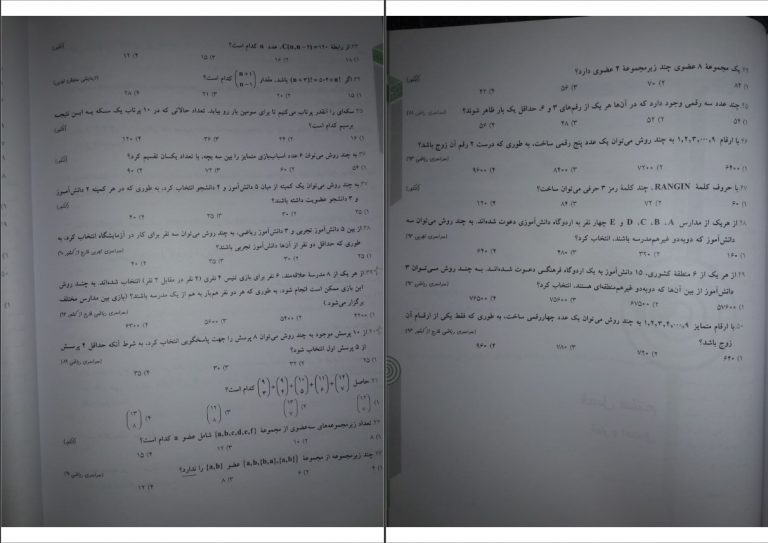 ۳۳. از رابطهٔ C(n,n-۲)=۱۲۰، عدد n کدام است؟ (کنکور)
۱) ۱۸ ۲) ۱۶ ۳) ۱۵ ۴) ۱۲
۳۴. اگر (n+۳)!=۵۰۴×n! باشد، مقدار (n+۱ n-۱) کدام است؟
۱) ۱۵ ۲) ۲۰ ۳) ۲۱ ۴) ۲۸
۳۵. سکه‌ای را آنقدر پرتاب می‌کنیم تا برای سومین بار رو بیاید. تعداد حالاتی که در ۱۰ پرتاب یک سکه به این نتیجه
برسیم کدام است؟ (کنکور)
۱) ۱۶ ۲) ۲۴ ۳) ۳۶ ۴) ۱۲۰
۳۶. به چند روش می‌توان ۶ عدد اسباب‌بازی متمایز را بین سه بچه، با تعداد یکسان تقسیم کرد؟
۱) ۵۴ ۲) ۶۰ ۳) ۷۲ ۴) ۹۰
۳۷. به چند روش می‌توان یک کمیته از میان ۵ دانش‌آموز و ۴ دانشجو انتخاب کرد، به طوری که در هر کمیته ۲ دانش‌آموز
و ۳ دانشجو عضویت داشته باشند؟
۱) ۲۵ ۲) ۳۰ ۳) ۳۵ ۴) ۴۰
۳۸. از بین ۵ دانش‌آموز تجربی و ۳ دانش‌آموز ریاضی، به چند روش می‌توان سه نفر برای کار در آزمایشگاه انتخاب کرد، به
طوری که حداقل دو نفر از آن‌ها دانش‌آموز تجربی باشند؟ (سراسری تجربی خارج از کشور ۹۰)
۱) ۲۵ ۲) ۳۰ ۳) ۳۵ ۴) ۴۰
۳۹. از هر یک از ۸ مدرسهٔ علاقمند، ۶ نفر برای بازی تنیس ۴ نفری (۲ نفر در مقابل ۲ نفر) انتخاب شده‌اند. به چند روش
این بازی ممکن است انجام شود، به طوری که هر دو نفر هم‌یار به هم از یک مدرسه باشند؟ (بازی بین مدارس مختلف
برگزار می‌شود.) (سراسری ریاضی خارج از کشور ۹۲)
۱) ۴۲۰۰ ۲) ۵۴۰۰ ۳) ۵۶۰۰ ۴) ۶۳۰۰
۴۰. از ۱۰ پرسش موجود به چند روش می‌توان ۸ پرسش را جهت پاسخگویی انتخاب کرد، به شرط آنکه حداقل ۴ پرسش
از ۵ پرسش اول انتخاب شود؟ (سراسری ریاضی ۸۹)
۱) ۲۵ ۲) ۳۲ ۳) ۳۰ ۴) ۳۵
۴۱. حاصل کدام است؟
۴۲. تعداد زیرمجموعه‌های سه‌عضوی از مجموعهٔ {a,b,c,d,e,f} شامل عضو a کدام است؟ (کنکور)
۱) ۸ ۲) ۱۰ ۳) ۱۲ ۴) ۱۵
۴۳. چند زیرمجموعه از مجموعهٔ {a,b,{b,a},{a,b}} عضو {a,b} را ندارد؟
۱) ۴ ۲) ۶ ۳) ۸ ۴) ۱۲
۴۴. یک مجموعهٔ ۸ عضوی چند زیرمجموعهٔ ۴ عضوی دارد؟ (کنکور)
۱) ۸۴ ۲) ۷۰ ۳) ۵۶ ۴) ۴۲
۴۵. چند عدد سه رقمی وجود دارد که در آن‌ها هر یک از رقم‌های ۳ و ۶، حداقل یک بار ظاهر شوند؟
۱) ۵۴ ۲) ۵۲ ۳) ۴۸ ۴) ۵۶
۴۶. با ارقام ۱,۲,۳,...,۹ به چند روش می‌توان یک عدد پنج رقمی ساخت، به طوری که درست ۲ رقم آن زوج باشد؟
۱) ۶۴۰۰ ۲) ۷۲۰۰ ۳) ۸۴۰۰ ۴) ۹۶۰۰
۴۷. با حروف کلمهٔ RANGIN، چند کلمهٔ رمز ۳ حرفی می‌توان ساخت؟ (کنکور)
۱) ۶۰ ۲) ۷۲ ۳) ۸۴ ۴) ۱۲۰
۴۸. از هریک از مدارس A، B، C، D و E چهار نفر به اردوگاه دانش‌آموزی دعوت شده‌اند. به چند روش می‌توان سه
دانش‌آموز که دوبه‌دو غیرهم‌مدرسه باشند، انتخاب کرد؟
۱) ۱۶۰ ۲) ۳۲۰ ۳) ۴۸۰ ۴) ۶۴۰
۴۹. از هر یک از ۶ منطقهٔ کشوری، ۱۵ دانش‌آموز به یک اردوگاه فرهنگی دعوت شده‌اند. به چند روش می‌توان ۳
دانش‌آموز از بین آن‌ها که دوبه‌دو غیرهم‌منطقه‌ای هستند، انتخاب کرد؟
۱) ۵۷۶۰۰ ۲) ۶۷۵۰۰ ۳) ۷۵۶۰۰ ۴) ۷۶۵۰۰
۵۰. با ارقام متمایز ۱,۲,۳,۴,...,۹ به چند روش می‌توان یک عدد چهاررقمی ساخت، به طوری که فقط یکی از ارقام آن
زوج باشد؟ (سراسری ریاضی خارج از کشور ۹۳)
۱) ۶۴۰ ۲) ۷۲۰ ۳) ۷۸۰ ۴) ۹۶۰